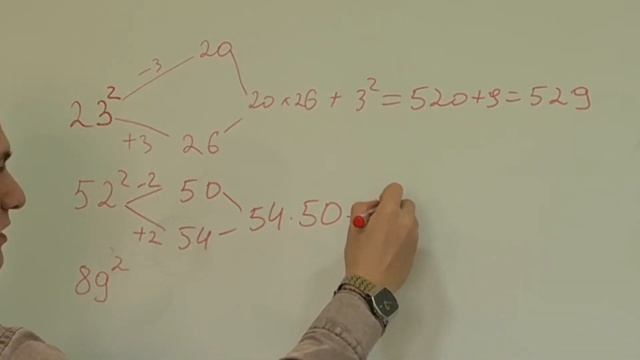 20
-3
23² 20 × 26 + 3² = 520 + 9 = 529
+3 26
52² -2 50
54 · 50
+2 54
89²